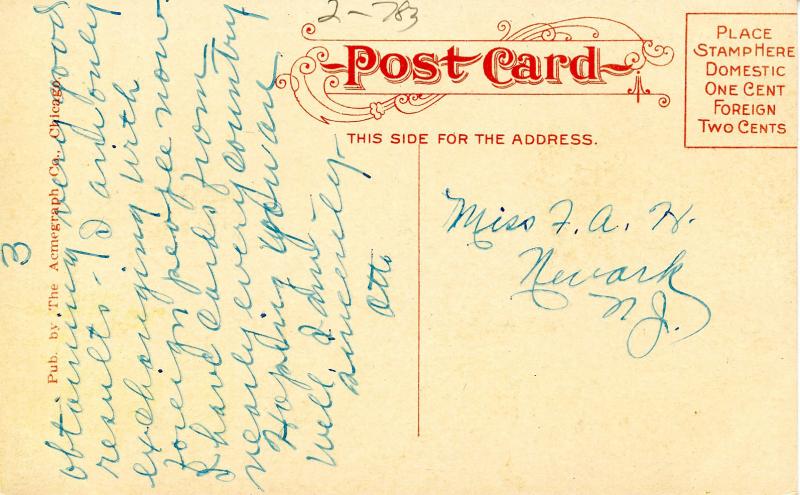 2-783
Post Card
THIS SIDE FOR THE ADDRESS.
PLACE
STAMP HERE
DOMESTIC
ONE CENT
FOREIGN
TWO CENTS
Miss F. A. H.
Newark
N.J.
3
Pub. by The Acmegraph Co., Chicago.
obtaining very good
results - I am only
exchanging with
foreign people now
I have cards from
nearly every country
Hoping you are
well, I am,
sincerely
Otto